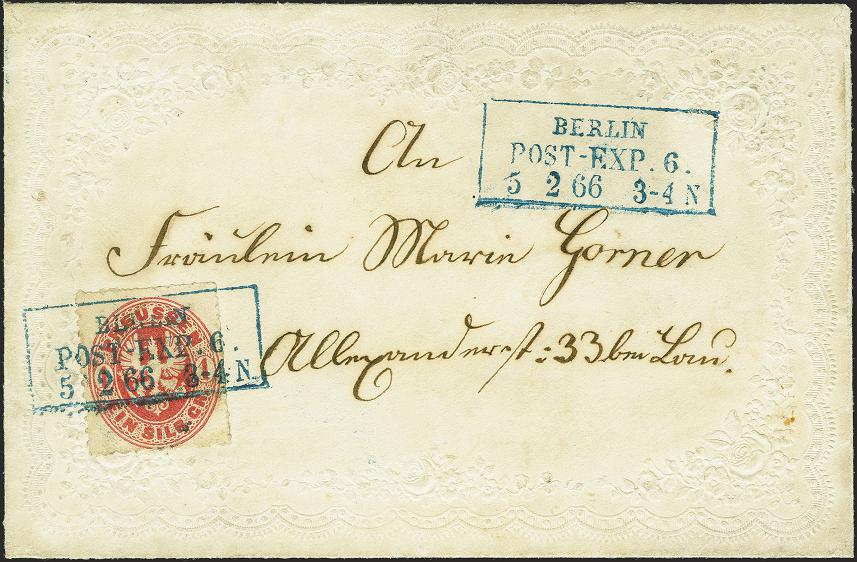 BERLIN
POST-EXP. 6.
5 2 66 3-4 N
An
Fräulein Marie Gorner
Allexanderst: 33 bei Lau.
PREUSSEN
EIN SILB. GR.
BERLIN
POST-EXP. 6.
5 2 66 3-4 N.